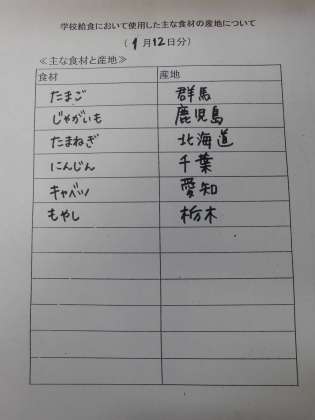 学校給食において使用した主な食材の産地について
(1月12日分)
≪主な食材と産地≫
食材 産地
たまご 群馬
じゃがいも 鹿児島
たまねぎ 北海道
にんじん 千葉
キャベツ 愛知
もやし 栃木